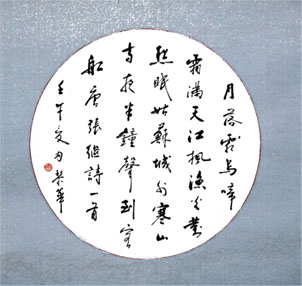 月落烏啼
霜滿天江楓漁火對
愁眠姑蘇城外寒山
寺夜半鐘聲到客
船唐張繼詩一首
壬午夏月華